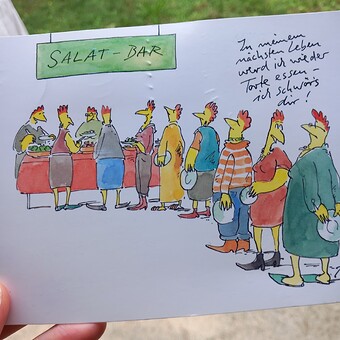 SALAT-BAR
In meinem
nächsten Leben
würd ich wieder
Torte essen -
ich schwörs
dir!